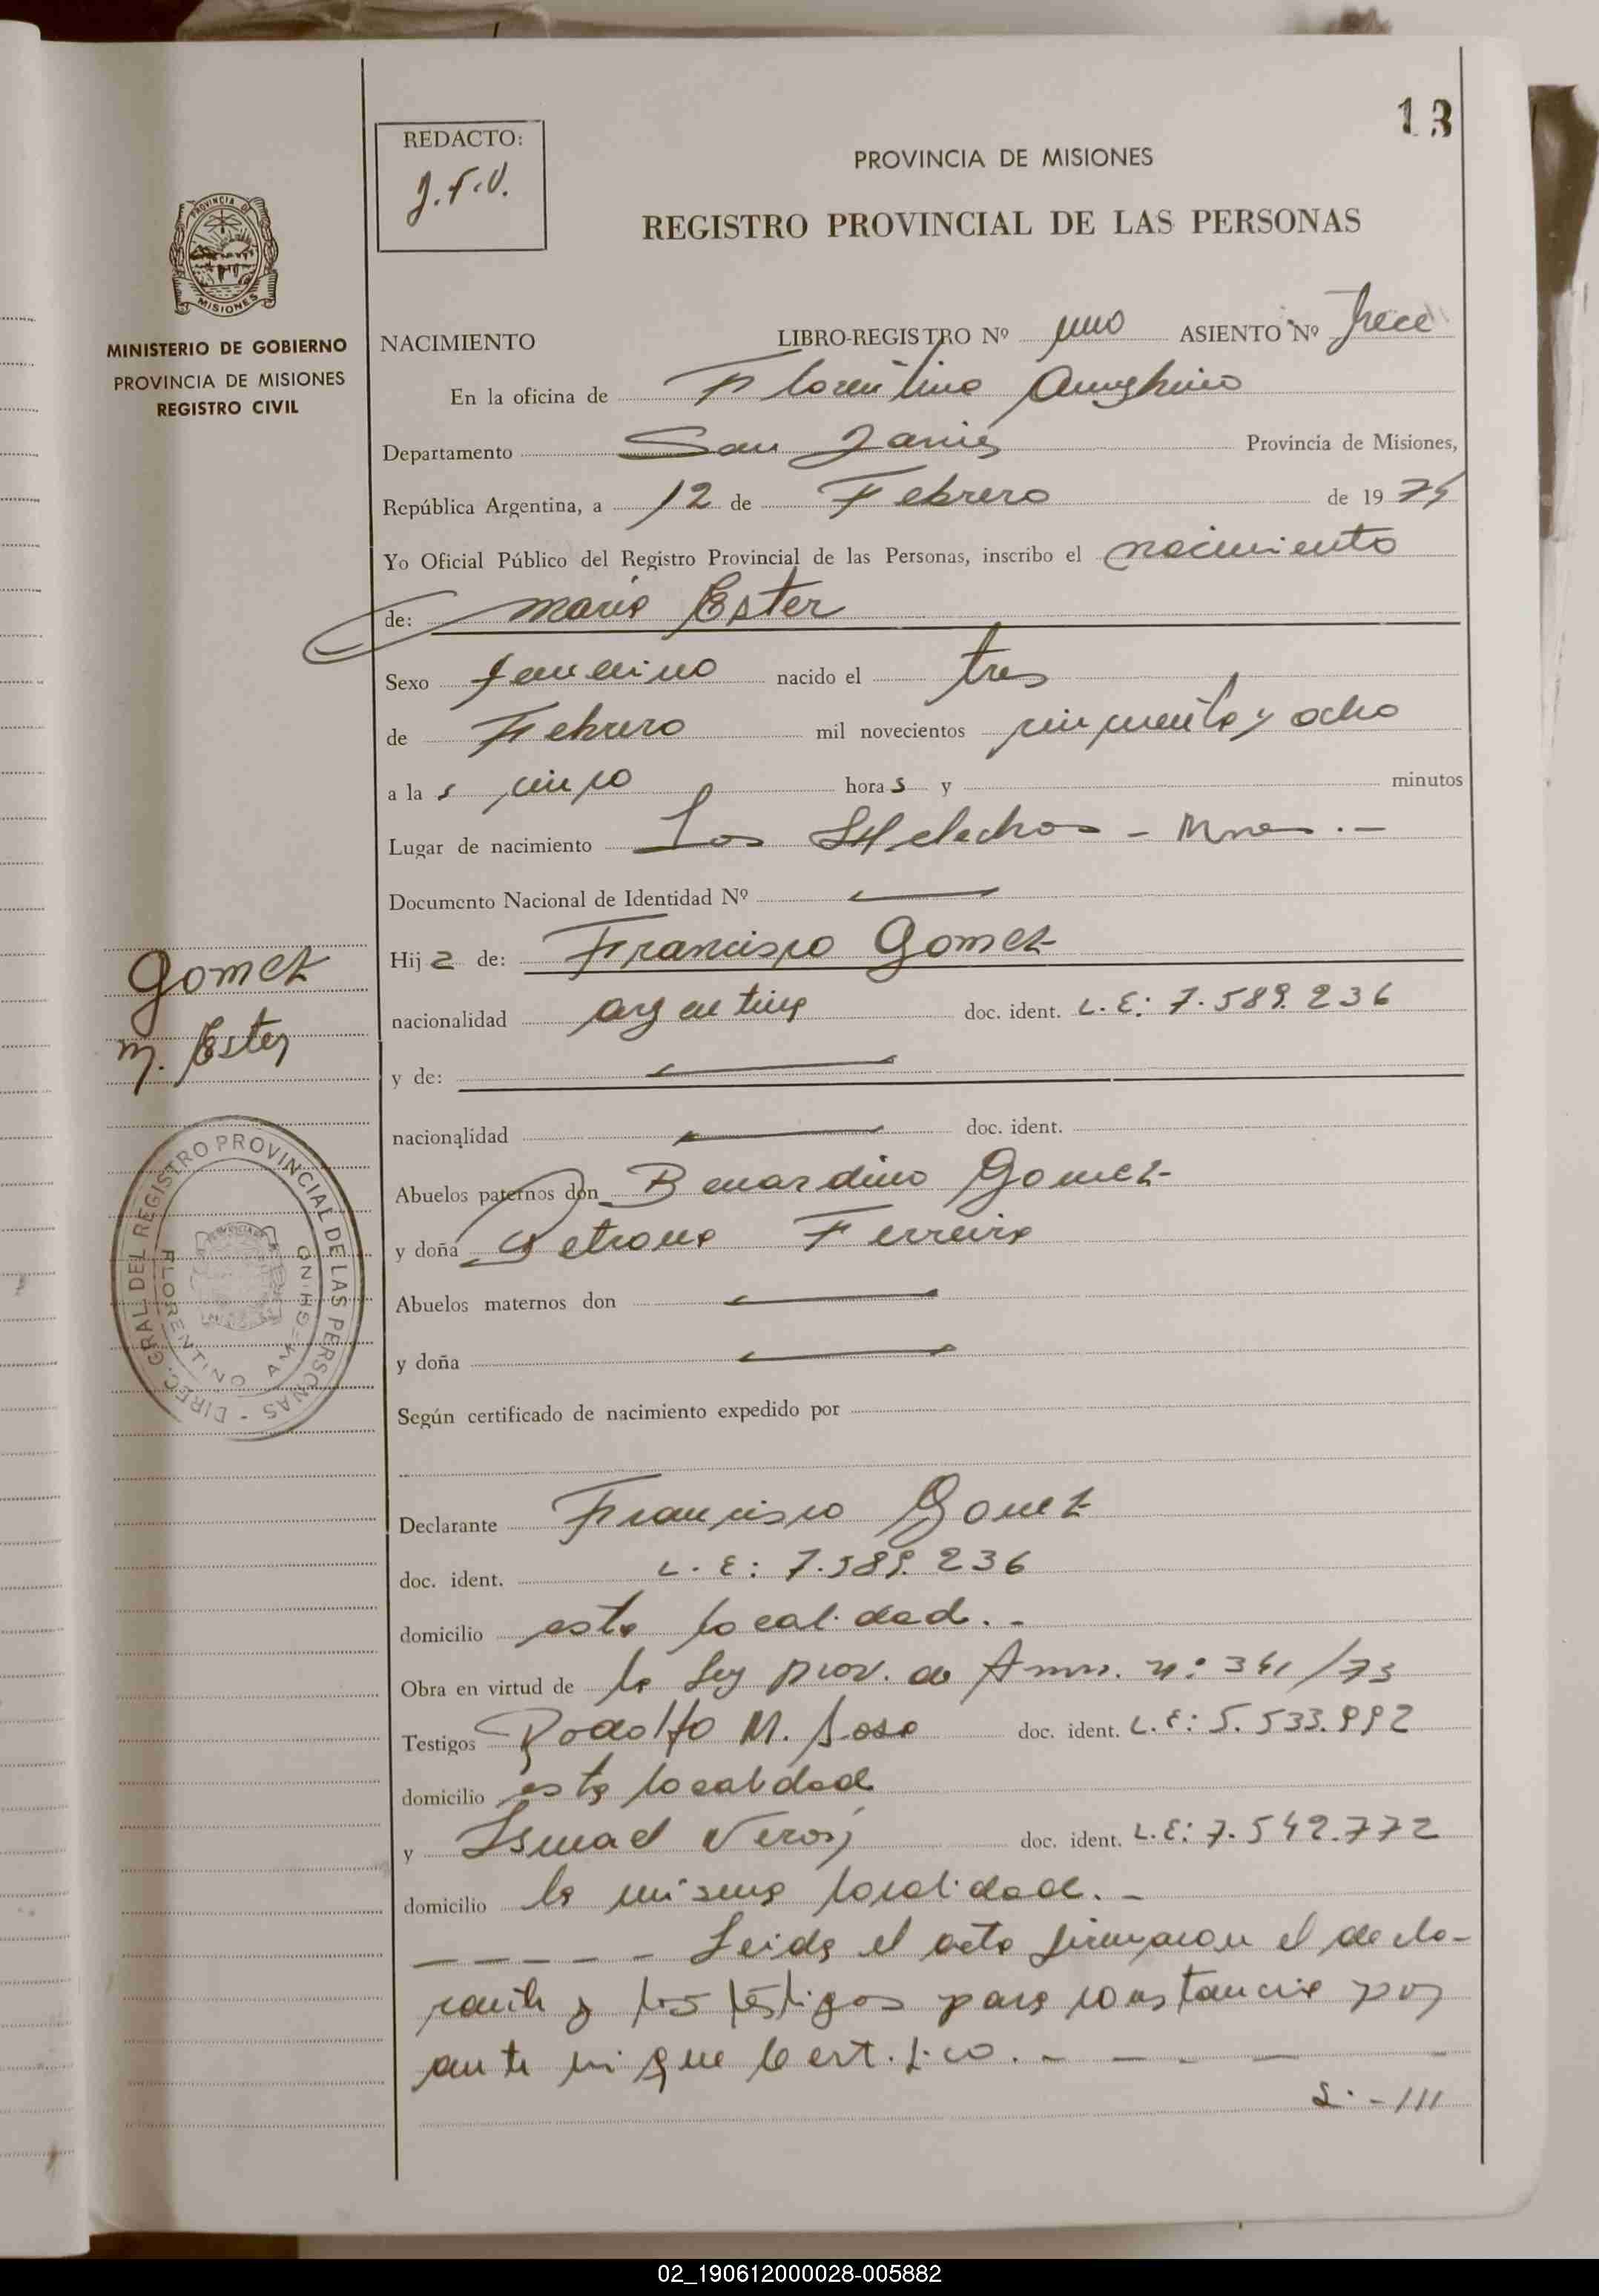 13
REDACTO:
J.F.V.
PROVINCIA DE MISIONES
REGISTRO PROVINCIAL DE LAS PERSONAS
PROVINCIA DE MISIONES
MINISTERIO DE GOBIERNO
PROVINCIA DE MISIONES
REGISTRO CIVIL
NACIMIENTO LIBRO-REGISTRO Nº uno ASIENTO Nº Trece
En la oficina de Florentino Ameghino
Departamento San Javier Provincia de Misiones,
República Argentina, a 12 de Febrero de 19 74
Yo Oficial Público del Registro Provincial de las Personas, inscribo el nacimiento
de: Maria Ester
Sexo femenino nacido el tres
de Febrero mil novecientos cincuenta y ocho
a la s cinco hora s y minutos
Lugar de nacimiento Los Helechos - Mnes. -
Documento Nacional de Identidad Nº
Hij a de: Francisco Gomez
nacionalidad argentina doc. ident. L.E: 7.589.236
y de:
nacionalidad doc. ident.
Gomez
M. Ester
Abuelos paternos don Benardino Gomez
y doña Petrona Ferreira
Abuelos maternos don
y doña
DIREC. GRAL DEL REGISTRO PROVINCIAL DE LAS PERSONAS -
FLORENTINO AMEGHINO
Según certificado de nacimiento expedido por
Declarante Francisco Gomez
doc. ident. L.E: 7.589.236
domicilio esta localidad. -
Obra en virtud de la Ley prov. de Amn. nº 341/73
Testigos Rodolfo M. Sosa doc. ident. L.E: 5.533.992
domicilio esta localidad
y Ismael Veron doc. ident. L.E: 7.542.772
domicilio la misma localidad. -
- - - - - Leida el acta firmaron el decla-
rante y los testigos para constancia por
ante mi que certifico. - - - - -
S. - III
02_190612000028-005882